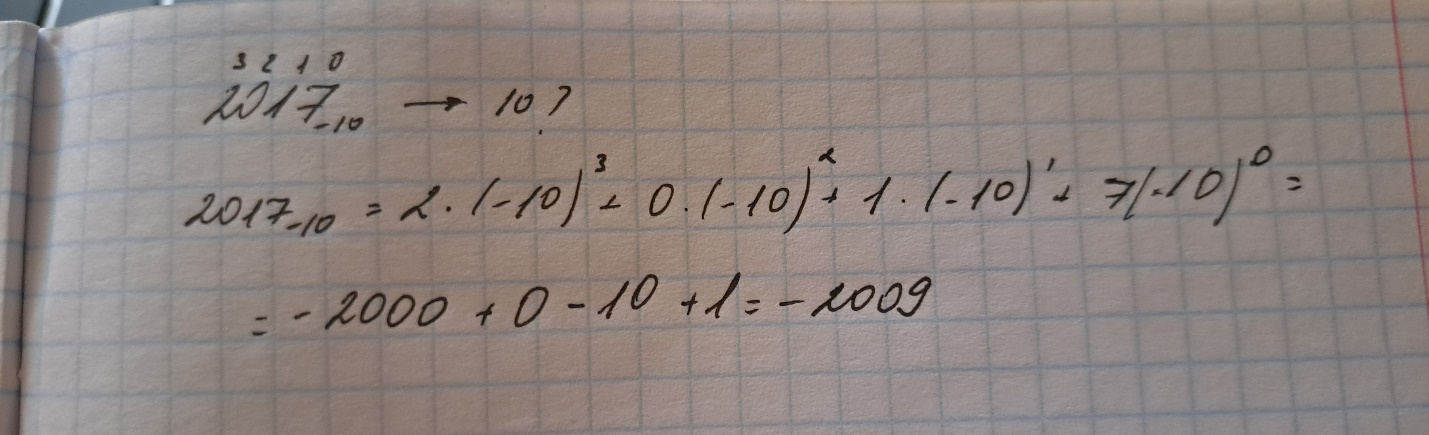 3 2 1 0
2017₋₁₀ → 10?
2017₋₁₀ = 2·(-10)³ + 0·(-10)² + 1·(-10)¹ + 7(-10)⁰ =
= -2000 + 0 - 10 + 1 = -2009